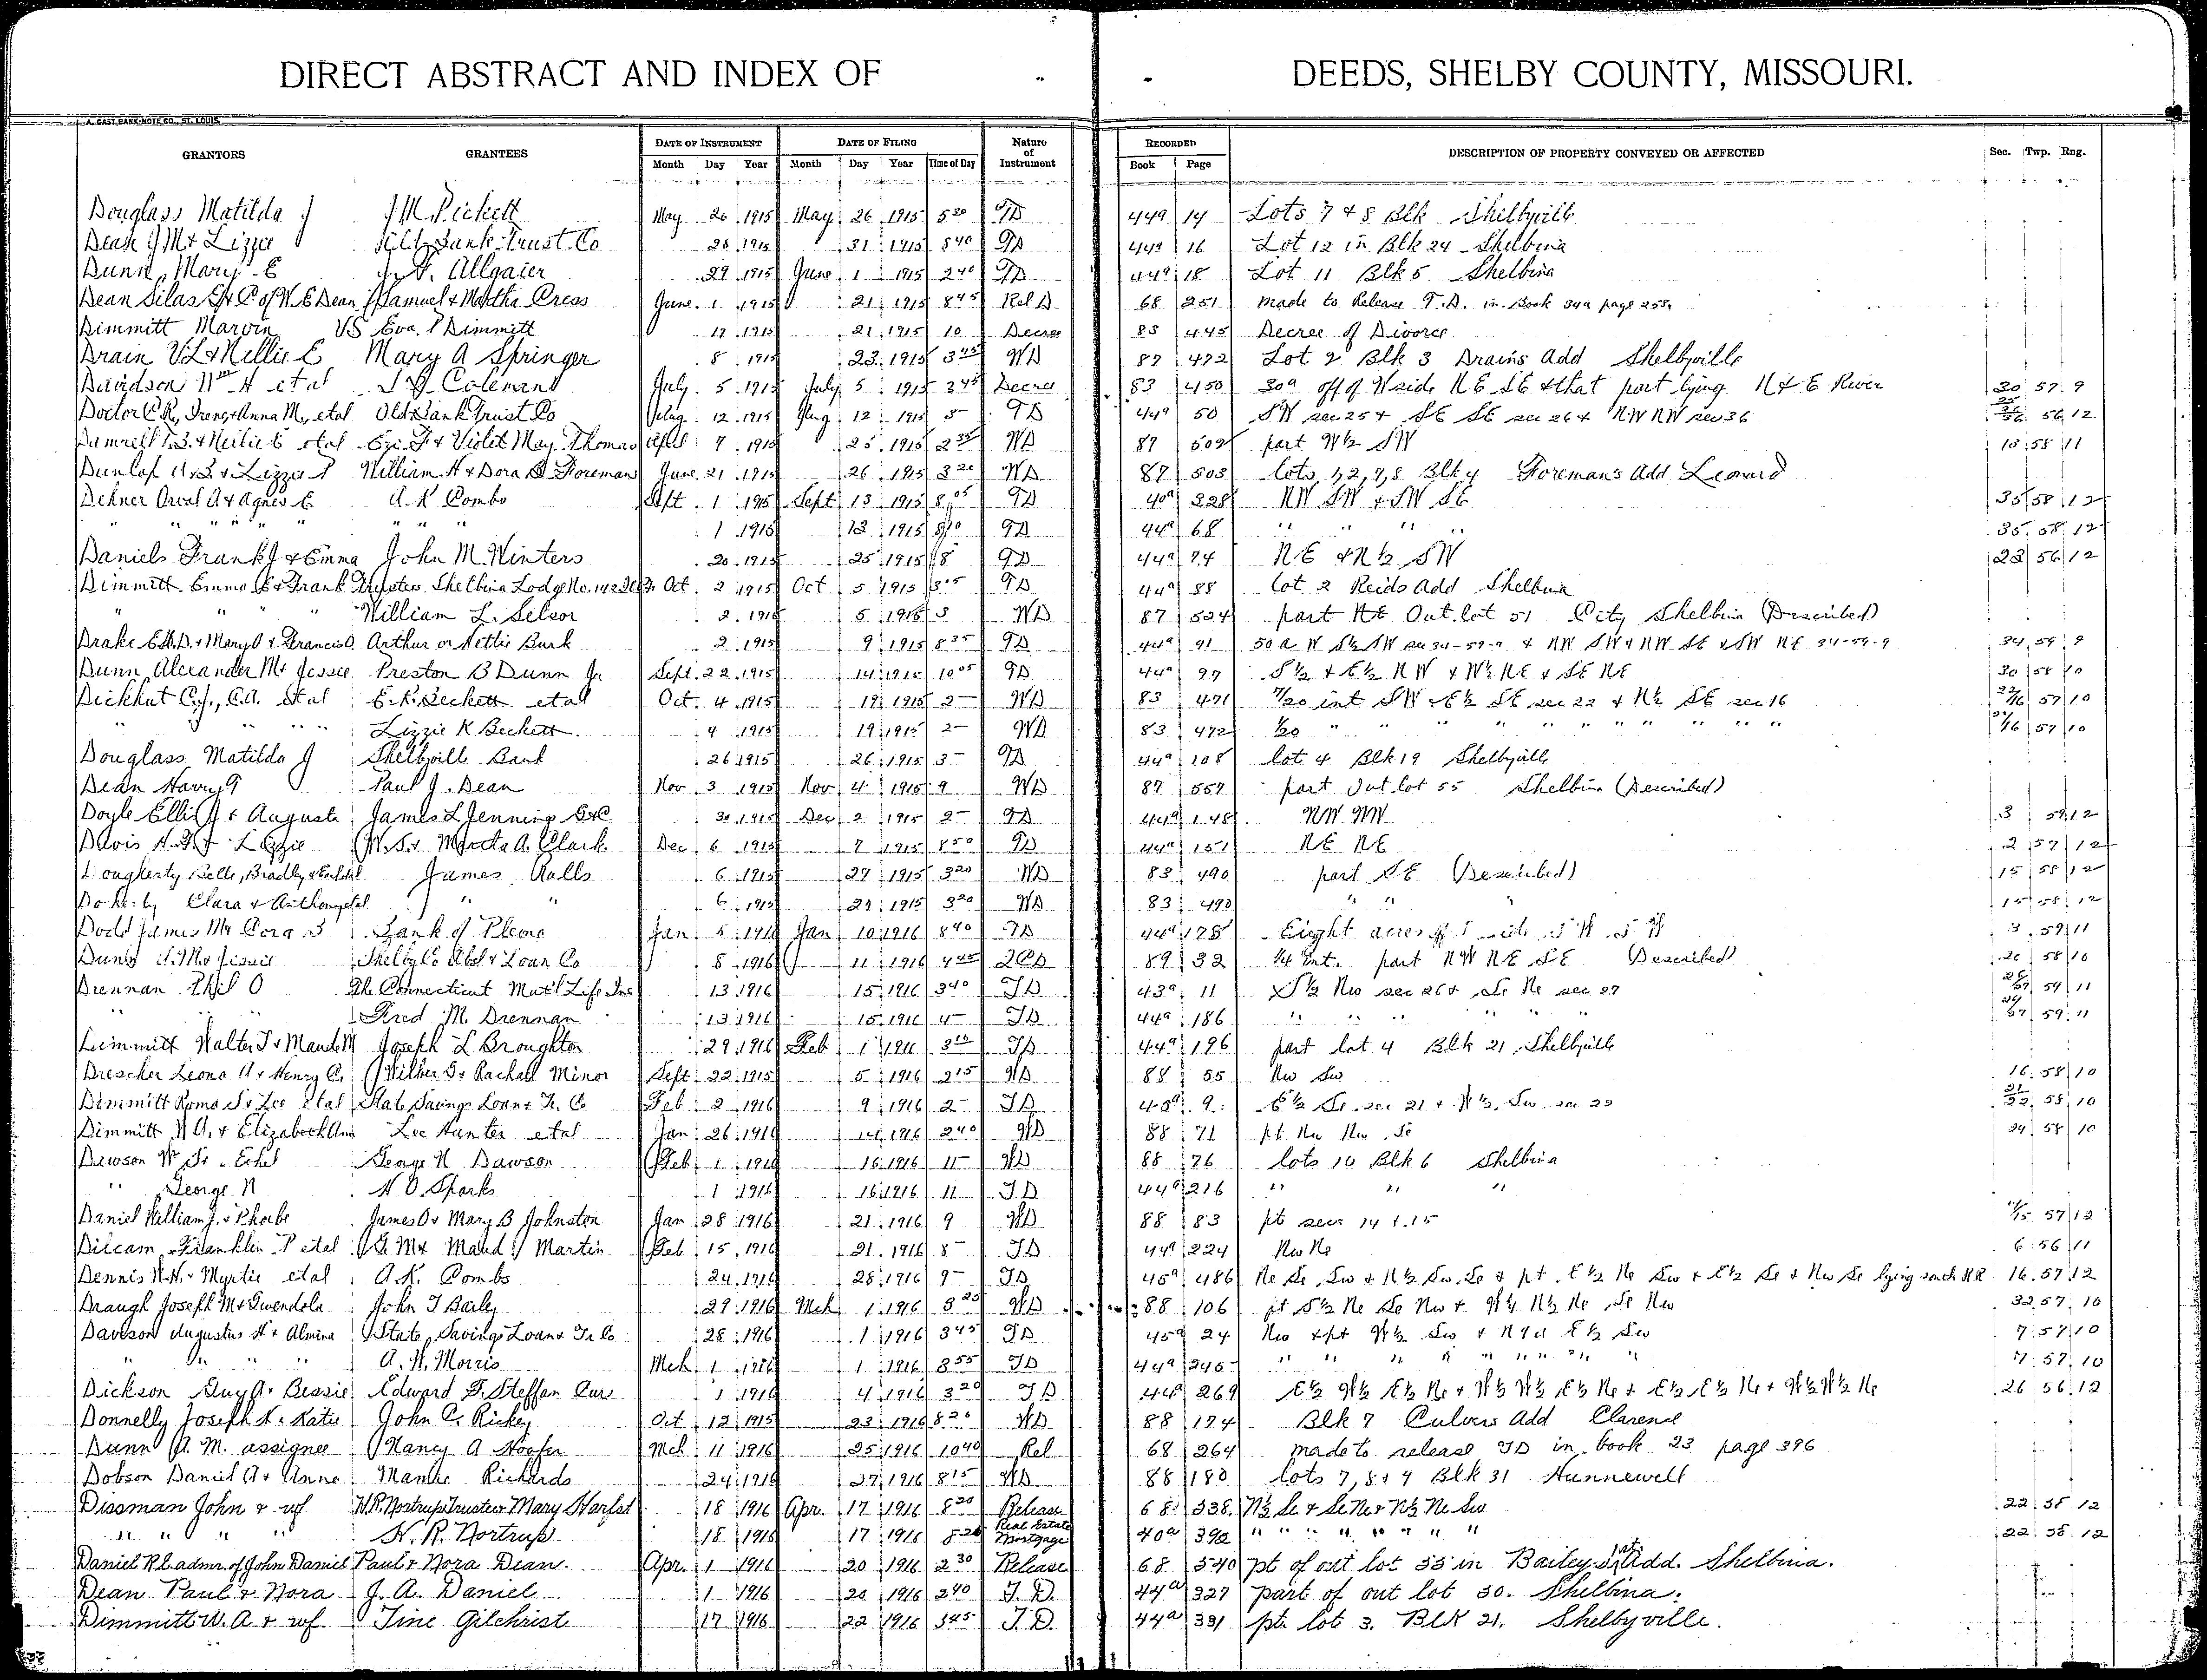 DIRECT ABSTRACT AND INDEX OF DEEDS, SHELBY COUNTY, MISSOURI.
A. GAST BANK NOTE CO., ST. LOUIS.
GRANTORS GRANTEES DATE OF INSTRUMENT DATE OF FILING Nature of Instrument RECORDED DESCRIPTION OF PROPERTY CONVEYED OR AFFECTED Sec. Twp. Rng.
Month Day Year Month Day Year Time of Day Book Page
Douglass Matilda J J M. Pickett May 26 1915 May 26 1915 5 20 TD 44a 14 Lots 7 & 8 Blk Shelbyville
Dean J M & Lizzie Old Bank Trust Co 28 1915 31 1915 8 40 TD 44a 16 Lot 12 in Blk 24 Shelbina
Dunn, Mary E F. Allgaier 29 1915 June 1 1915 2 40 TD 44a 18 Lot 11 Blk 5 Shelbina
Dean Silas of W E Dean Samuel & Martha Cress June 1 1915 21 1915 8 45 Rel D 68 251 Made to Release T.D. in Book 34a page 253.
Dimmitt Marvin VS Eva Dimmitt 17 1915 21 1915 10 Decree 83 445 Decree of Divorce
Drain V L & Nellie E Mary A Springer 8 1915 23 1915 3 45 WD 87 472 Lot 2 Blk 3 Drains Add Shelbyville
Davidson Wm H et al Coleman July 5 1915 July 5 1915 3 45 Decree 83 450 30a off of W side N E S E & that part lying N & E River 30 57 9
Doctor C R, Irene & Anna M, et al Old Bank Trust Co Aug 12 1915 Aug 12 1915 3 - TD 44a 50 S W sec 25 & SE SE sec 26 & NW NW sec 36 56 12
Damrell & Nellie et al & Violet May Thomas April 7 1915 25 1915 2 35 WD 87 502 part W½ SW 18 58 11
Dunlap & Lizzie William H & Dora Foreman June 21 1915 26 1915 3 20 WD 87 503 lots 1, 2, 7, 8 Blk 4 Foremans Add Leonard
Dehner Orval A & Agnes E A. K Combs Sept 1 1915 Sept 13 1915 8 05 TD 40a 328 NW SW & SW SE 35 58 12
" " " " " " " " 1 1915 13 1915 8 10 TD 44a 68 " " " " 35 58 12
Daniels Frank J & Emma John M. Winters 20 1915 25 1915 8 TD 44a 74 N.E & N½ SW 23 56 12
Dimmitt Emma E & Frank Trustees Shelbina Lodge No. Oct 2 1915 Oct 5 1915 TD 44a 88 Lot 2 Reids Add Shelbina
" " " " William L. Selsor 2 1915 5 1915 3 WD 87 524 part NE Out lot 51 City Shelbina (Described)
Drake & Mary & Francis O. Arthur or Nettie Burk 2 1915 9 1915 8 35 TD 44a 91 50 a W S½ SW sec 34-59-9 & NW SW & NW SE & SW NE 34-59-9 34 59 9
Dunn Alexander M & Jessie Preston B Dunn Jr Sept. 22 1915 14 1915 10 05 TD 44a 97 S½ & E½ N W & W½ N.E & SE NE 30 58 10
Dickhut C.J., C.A. et al E. K. Beckett et al Oct. 4 1915 19 1915 2 - WD 83 471 int SW & E½ SE sec 22 & N½ SE sec 16 22/16 57 10
" " " " Lizzie K Beckett. 4 1915 19 1915 2 - WD 83 472 1/20 " " " " " " " " " 57 10
Douglass Matilda J Shelbyville Bank 26 1915 26 1915 3 - TD 44a 108 lot 4 Blk 19 Shelbyville
Dean Harry Paul J. Dean Nov 3 1915 Nov 4 1915 9 WD 87 557 part Out lot 55 Shelbina (Described)
Doyle Ellis J & Augusta James L Jennings G & C 30 1915 Dec 2 1915 2 - TD 44a 148 NW NW 3 59 12
Davis & Lizzie & Martha A. Clark Dec 6 1915 7 1915 8 50 TD 44a 151 NE NE 2 57 12
Dougherty Belle, Bradley James Ralls 6 1915 27 1915 3 20 WD 83 490 part SE (Described) 15 58 12
Clara & Anthony et al " " 6 1915 27 1915 3 20 WD 83 490 " " " 15 58 12
Dodd James M & Cora B Bank of Jan 5 1916 Jan 10 1916 8 40 TD 44a 178 Eight acres off side S W S W 3 59 11
Dunn & Jessie Shelby Co Abst & Loan Co 8 1916 11 1916 4 45 QCD 89 32 ¼ Int. part NW NE SE (Described) 20 58 10
Drennan Phil O The Connecticut Mut'l Life Ins 13 1916 15 1916 3 40 TD 43a 11 S½ Nw sec 26 & Se Ne sec 27 59 11
" Fred M. Drennan 13 1916 15 1916 4 - TD 44a 186 " " " " " 59 11
Dimmitt Walter & Maude M Joseph L Broughton 29 1916 Feb 1 1916 3 10 TD 44a 196 part lot 4 Blk 21, Shelbyville
Drescher Leona H & Henry C. Wilber & Rachael Minor Sept 22 1915 5 1916 2 15 WD 88 55 Nw Sw 16 58 10
Dimmitt Roma & Lee et al State Savings Loan & Tr. Co Feb 2 1916 9 1916 2 - TD 45a 9 E½ Se sec 21 & W½ Sw sec 22 21/22 58 10
Dimmitt W A. & Elizabeth Ann Lee Hunter et al Jan 26 1916 14 1916 2 40 WD 88 71 pt Nw Nw Se 24 58 10
Dawson & Ethel George N Dawson Feb 1 1916 16 1916 11 - WD 88 76 lots 10 Blk 6 Shelbina
" George N. N. O. Sparks 1 1916 16 1916 11 TD 44a 216 " " "
Daniel William J. & Phoebe James O & Mary B Johnston Jan 28 1916 21 1916 9 WD 88 83 pt secs 14 & 15 14/15 57 12
Dilcam Franklin P et al & Maud Martin Feb 15 1916 21 1916 8 - TD 44a 224 Nw Ne 6 56 11
Dennis & Myrtie et al A. K. Combs 24 1916 28 1916 9 - TD 45a 486 Ne Se Sw & N½ Sw Se & pt E½ Ne Sw & E½ Se & Nw Se lying south RR 16 57 12
Draugh Joseph M & Gwendola John T Bailey 29 1916 Mch 1 1916 WD 88 106 pt S½ Ne Se Nw & W½ N½ Ne Se Nw 32 57 10
Davison Augustus H & Almina State Savings Loan & Tr Co 28 1916 1 1916 3 45 TD 45a 24 Nw & pt W½ Sw & E½ Sw 7 57 10
" " " " A. H. Morris Mch 1 1916 1 1916 8 55 TD 44a 245 " " " " " " " " " 7 57 10
Dickson Guy A & Bessie Edward F. Steffan Cur 1 1916 4 1916 3 20 TD 44a 269 E½ W½ E½ Ne & W½ W½ E½ Ne & E½ E½ Ne & W½ W½ Ne 26 56 12
Donnelly Joseph H. & Katie John C. Rickey Oct 12 1915 23 1916 8 20 WD 88 174 Blk 7 Culvers Add Clarence
Dunn A. M. assignee Nancy A Hooper Mch 11 1916 25 1916 10 40 Rel 68 264 made to release TD in book 23 page 396
Dobson Daniel A & Anna Mamie Richards 24 1916 27 1916 8 15 WD 88 180 lots 7, 8 & 9 Blk 31 Hunnewell
Dissman John & wf H. R. Nortrup Trustee & Mary 18 1916 Apr. 17 1916 8 20 Release 68 338 N½ Se & Se Ne & N½ Ne Sw 22 58 12
" " " " H. R. Nortrup 18 1916 17 1916 8 20 Real Estate Mortgage 40a 392 " " " " " " " " 22 58 12
Daniel R L admr. of John Daniel Paul & Nora Dean. Apr. 1 1916 20 1916 2 30 Release 68 340 pt of out lot 55 in Bailey's 1st Add. Shelbina.
Dean Paul & Nora J. A. Daniel 1 1916 20 1916 2 40 T. D. 44a 327 part of out lot 30. Shelbina.
Dimmitt W. A & wf Tine Gilchrist 17 1916 22 1916 3 45 T. D. 44a 331 pt. lot 3. BLK 21. Shelbyville.